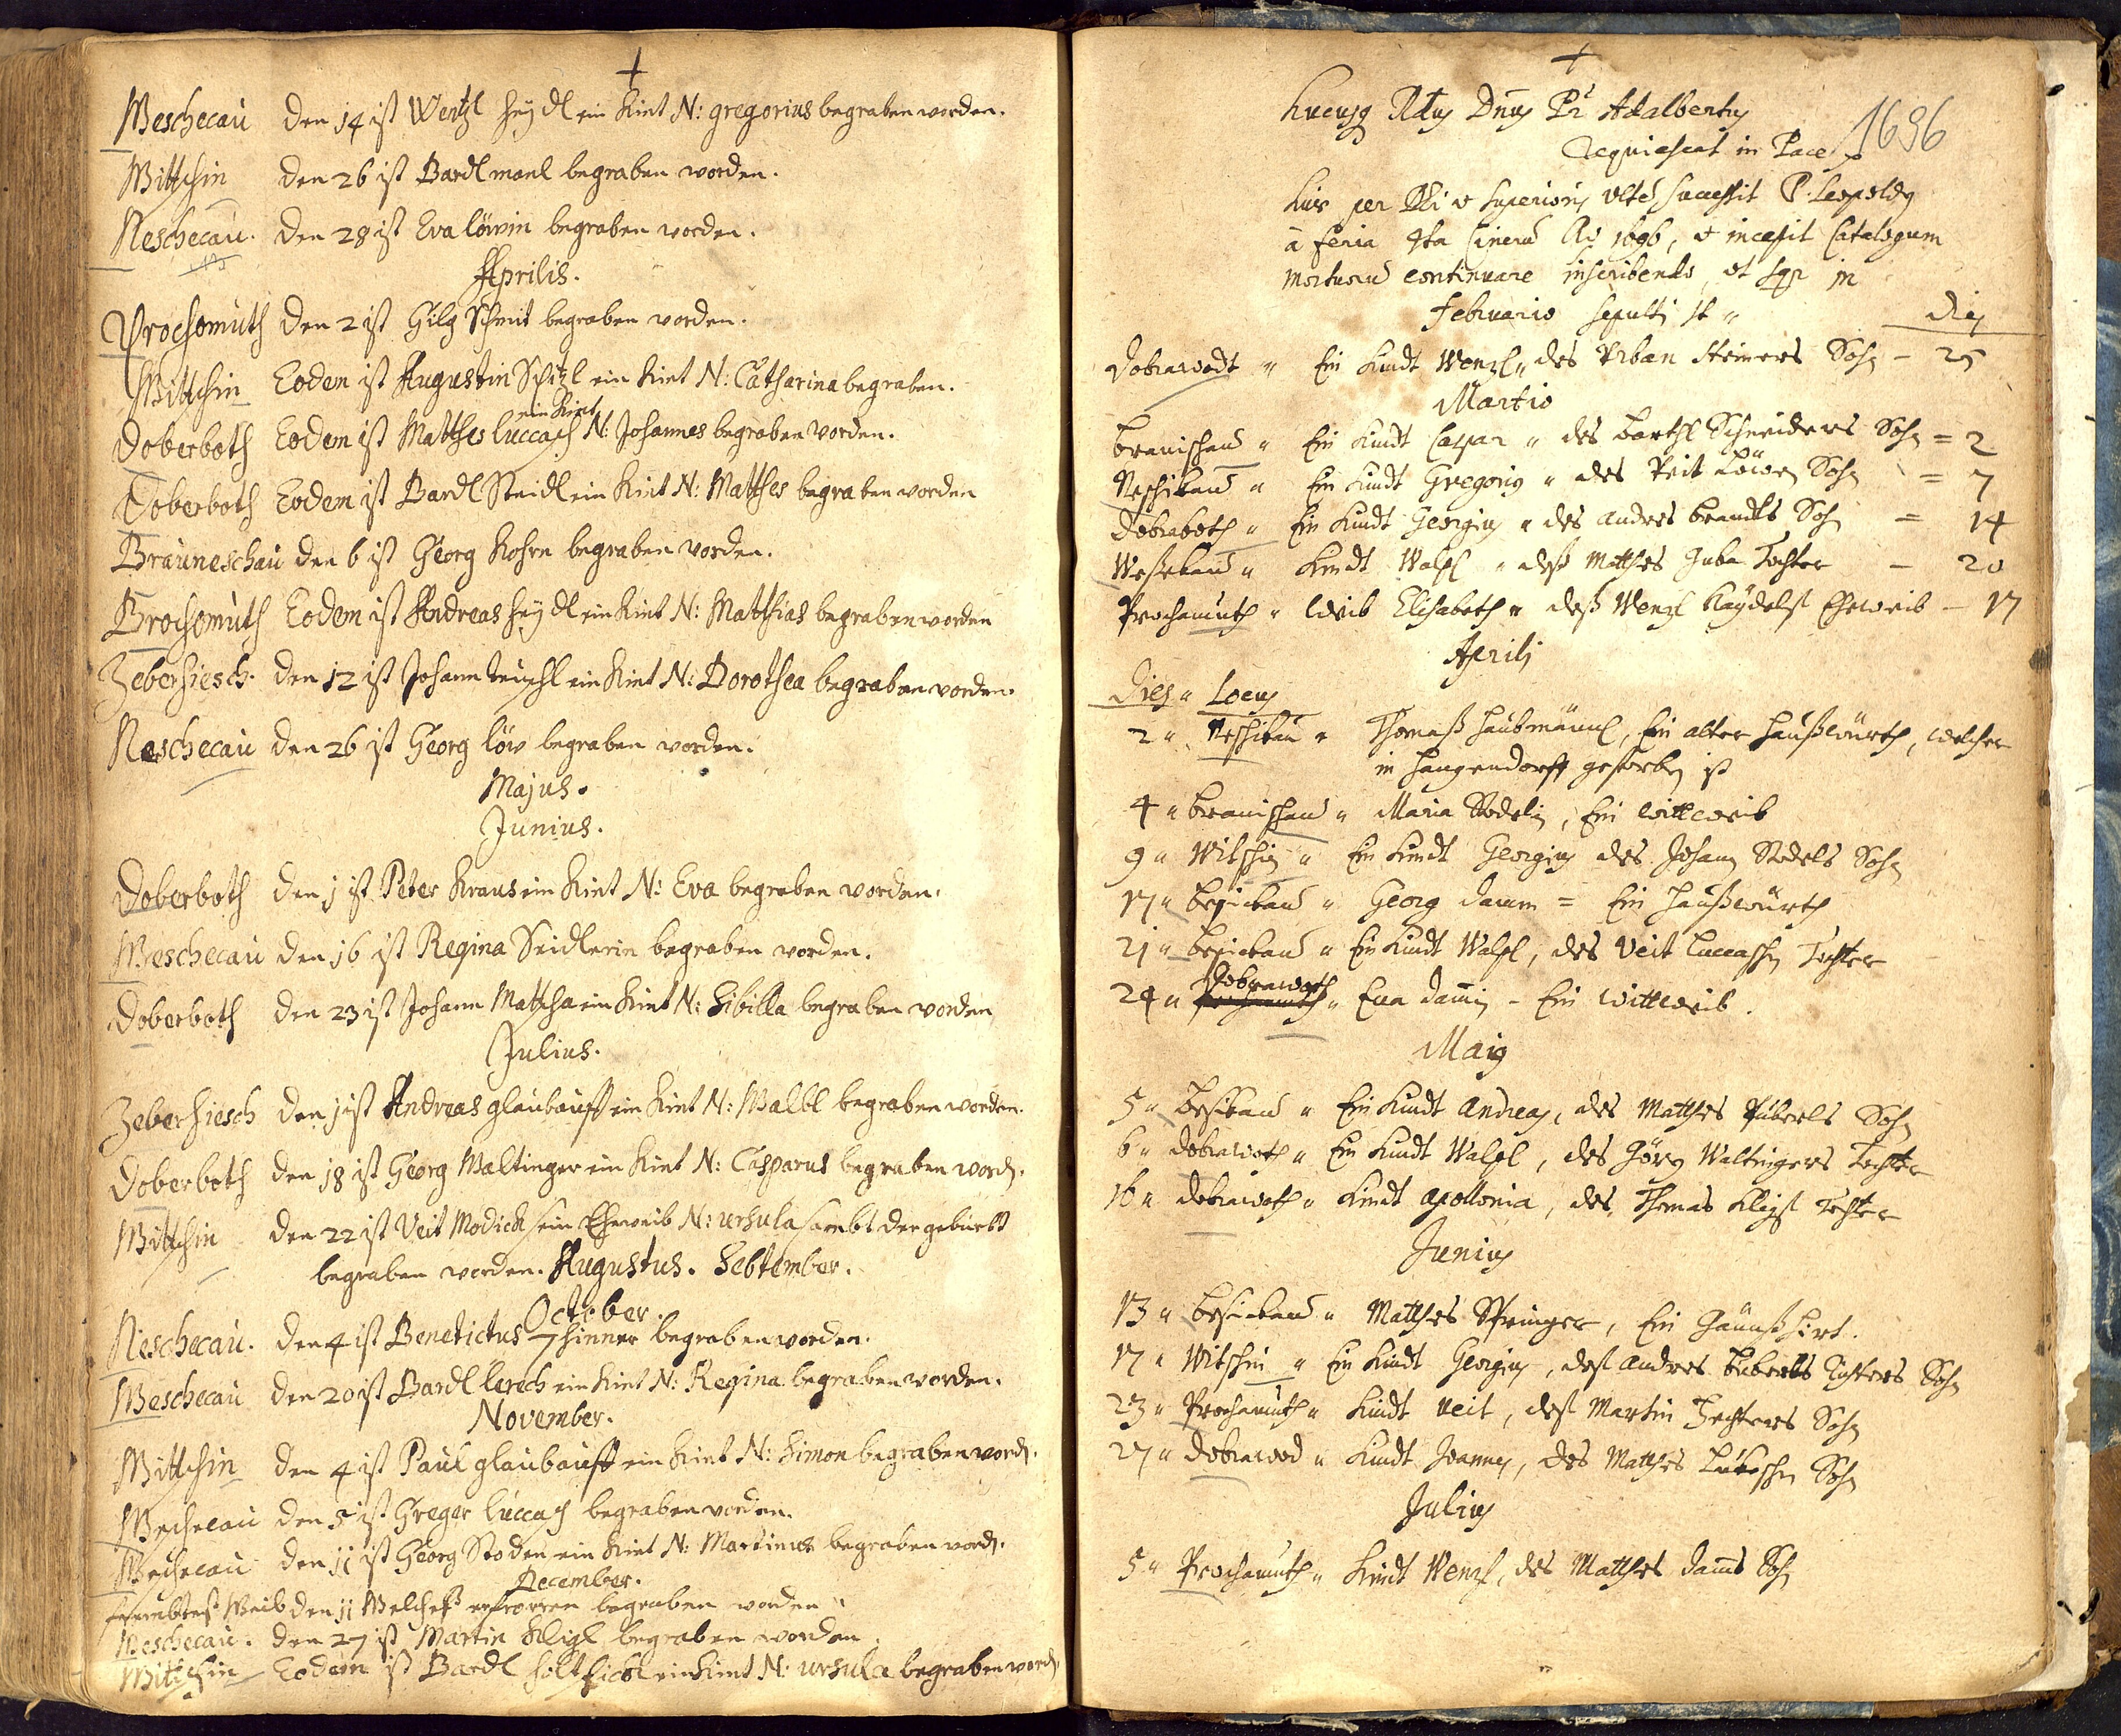 Weschecau den 14 ist Wentzl heÿdl ein Kint N: gregorius begraben worden.
Wittschin den 26 ist Bardl manl begraben worden.
Neschecau. den 28 ist Eva löwin begraben worden.
Aprilis.
Prochomuth den 2 ist Gilg Schmit begraben worden.
Wittschin Eodem ist Augustin Schitzl ein Kint N: Catharina begraben.
Doberboth Eodem ist Matthes luccasch ein Kint N: Johannes begraben worden.
Doberboth Eodem ist Bardl Steidl ein Kint N: Matthes begraben worden
Brauneschau den 6 ist Georg Kohrn begraben worden.
Prochomuth Eodem ist Andreas heÿdl ein Kint N: Matthias begraben worden
Zeberhiesch. den 12 ist Johann teuschl ein Kint N: Dorothea begraben worden.
Neschecau den 26 ist Georg löw begraben worden.
Majus.
Junius.
Doberboth den 1 ist Peter Kraus ein Kint N: Eva begraben worden.
Weschecau den 16 ist Regina Seidlerin begraben worden.
Doberboth den 23 ist Johann Mattha ein Kint N: Sibilla begraben worden
Julius.
Zeberhiesch den 1 ist Andreas glaubauff ein Kint N: Walbl begraben worden.
Doberboth den 18 ist Georg Waltinger ein Kint N: Casparus begraben word.
Wittschin den 22 ist Veit Modick sein Eheweib N: ursula sambt der geburtt
begraben worden. Augustus. Sebtember.
October.
Neschecau. den 4 ist Benetictus Thinner begraben worden.
Weschecau den 20 ist Bardl lerch ein Kint N: Regina begraben worden.
November.
Wittschin den 4 ist Paul glaubauff ein Kint N: Simon begraben word.
Weschecau den 5 ist Greger luccasch begraben worden.
Weschecau den 11 ist Georg Stoden ein Kint N: Martinus begraben word.
December.
Weib den 11 Welches erfrorren begraben worden.
Weschecau. den 27 ist Martin Kligl begraben worden.
Wittschin Eodem ist Bardl ein Kint N: ursula begraben word.
1696
Hucusq Rdus Dnus Pr Adalbertus
Requiescat in Pace
Huic per successit P. Leopoldus
à feria 4ta Cinerum Ao 1696, & incepit Catalogum
mortuorum continuare inscribendo, ut sqr in
Februario sepulti st " dies
Dobrawodt " Ein Kindt Wenzl " des Urban Steiners Sohn - 25
Martio
Branischau " Ein Kindt Caspar " des Barthl Schneiders Sohn = 2
Neschikau " Ein Kindt Gregorius " des Veit Löwen Sohn = 7
Dobraboth " Ein Kindt Georgius " des Andres Brandls Sohn = 14
Weßekau " Kindt Walpl " deß Matthes Huba Tochter - 20
Prochamuth " Weib Elisabeth " deß Wenzl Haÿdelß Eheweib - 17
Aprilj
Dies " Locus
2 " Neschikau " Thomaß Haubmännl, Ein alter Haußwürth, welcher
in Hangendorff gestorben ist
4 " Branischau " Maria Stodelin, Ein Wittweib
9 " Witschin " Ein Kindt Georgius des Johann Stodels Sohn
17 " Besickau " Georg Damm = Ein Haußwürth
21 " Besickau " Ein Kindt Walpl, des Veit Luccaschen Tochter
24 " Dobrawoth " Eva Dammin - Ein Wittweib.
Maius
5 " Besikau " Ein Kindt Andreas, des Matthes Sohn
6 " Dobrawoth " Ein Kindt Walpl, des Görg Waltingers Tochter
16 " Dobrawoth " Kindt Apollonia, des Thomas Kligß Tochter
Junius
13 " Besickau " Matthes Springer, Ein Gännßhirt.
17 " Witschin " Ein Kindt Georgius, deß Andres Sohn
23 " Prochamuth " Kindt Veit, deß Martin Sohn
27 " Dobrawod " Kindt Joannes, des Matthes Lukaschen Sohn
Julius
5 " Prochamuth " Kindt Wenzl, des Matthes Damms Sohn